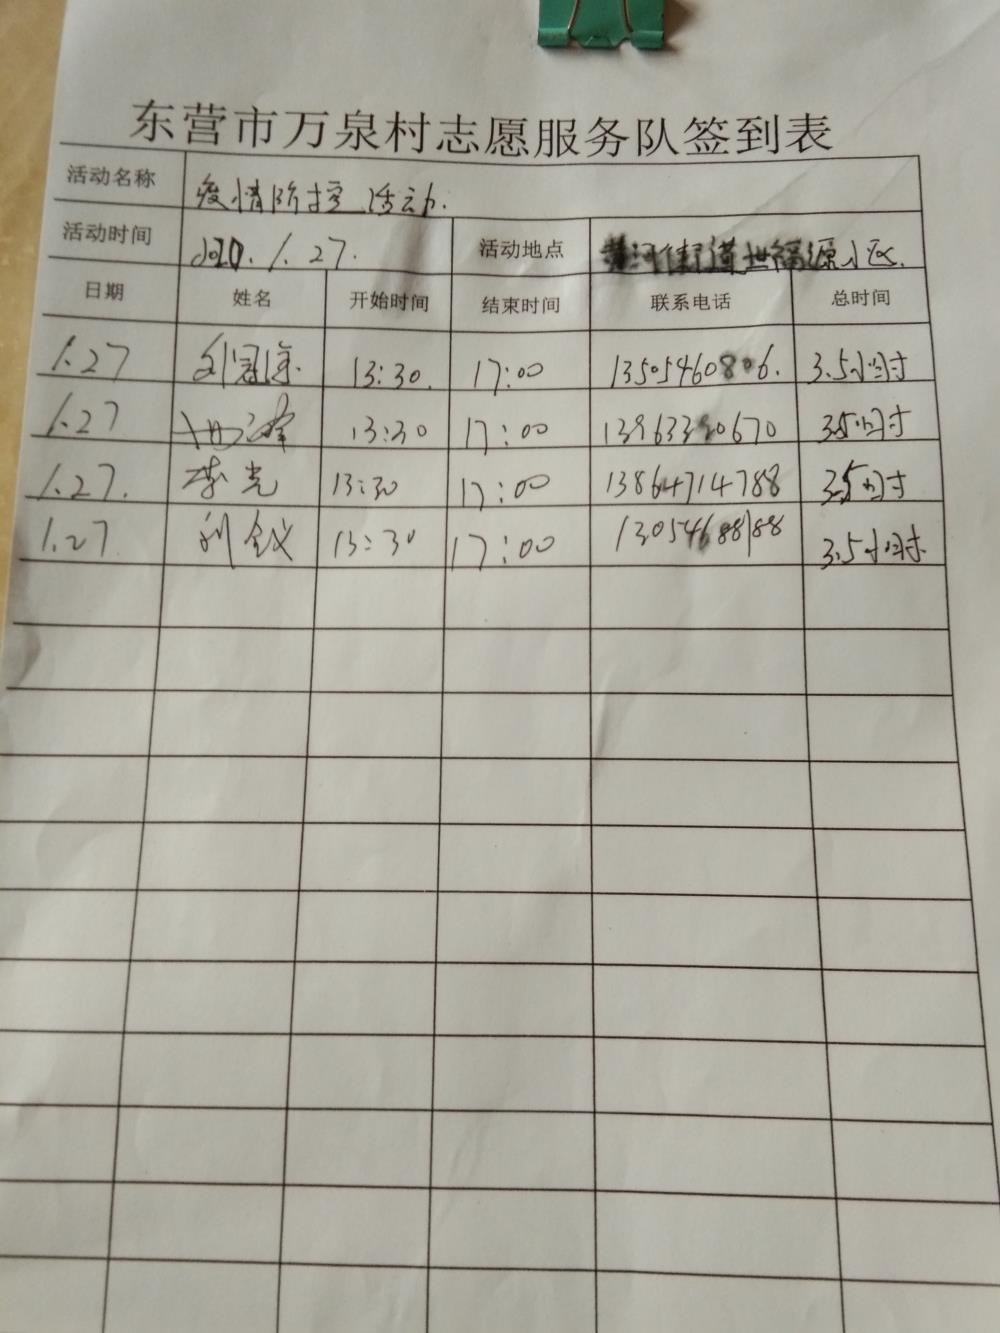 东营市万泉村志愿服务队签到表
活动名称 疫情防控活动.
活动时间 2020.1.27. 活动地点 黄河街道世福源小区.
日期 姓名 开始时间 结束时间 联系电话 总时间
1.27 13:30. 17:00 13505460806. 3.5小时
1.27 13:30 17:00 3.5小时
1.27. 李光 13:30 17:00 13864714788 3.5小时
1.27 13:30 17:00 13054688188 3.5小时.